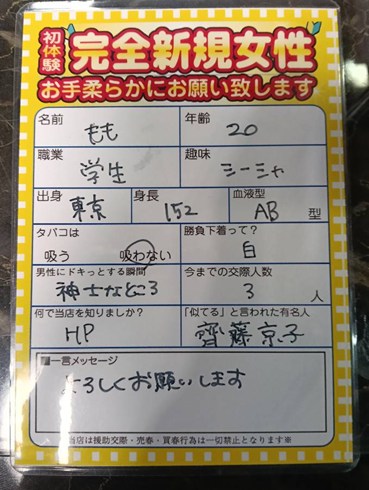 初体験 完全新規女性
お手柔らかにお願い致します
名前 もも 年齢 20
職業 学生 趣味 シーシャ
出身 東京 身長 152 血液型 AB 型
タバコは 吸う 吸わない 勝負下着って? 白
男性にドキっとする瞬間 紳士なところ 今までの交際人数 3 人
何で当店を知りましたか? HP 「似てる」と言われた有名人 齊藤京子
■一言メッセージ
よろしくお願いします
当店は援助交際・売春・買春行為は一切禁止となります※